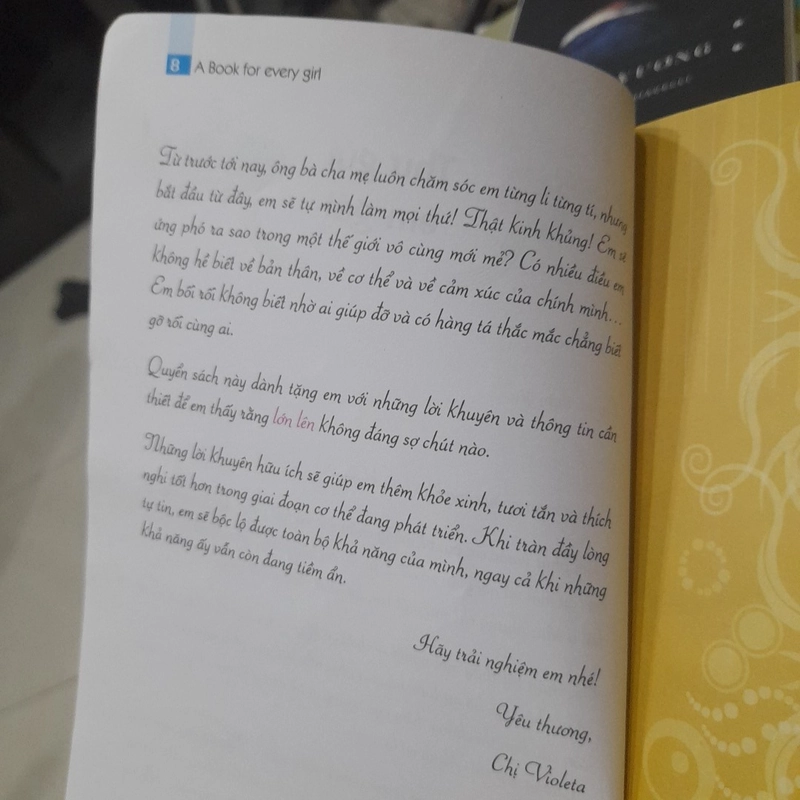 8 A Book for every girl
Từ trước tới nay, ông bà cha mẹ luôn chăm sóc em từng li từng tí, nhưng
bắt đầu từ đây, em sẽ tự mình làm mọi thứ! Thật kinh khủng! Em sẽ
ứng phó ra sao trong một thế giới vô cùng mới mẻ? Có nhiều điều em
không hề biết về bản thân, về cơ thể và về cảm xúc của chính mình...
Em bối rối không biết nhờ ai giúp đỡ và có hàng tá thắc mắc chẳng biết
gỡ rối cùng ai.
Quyển sách này dành tặng em với những lời khuyên và thông tin cần
thiết để em thấy rằng lớn lên không đáng sợ chút nào.
Những lời khuyên hữu ích sẽ giúp em thêm khỏe xinh, tươi tắn và thích
nghi tốt hơn trong giai đoạn cơ thể đang phát triển. Khi tràn đầy lòng
tự tin, em sẽ bộc lộ được toàn bộ khả năng của mình, ngay cả khi những
khả năng ấy vẫn còn đang tiềm ẩn.
Hãy trải nghiệm em nhé!
Yêu thương,
Chị Violeta